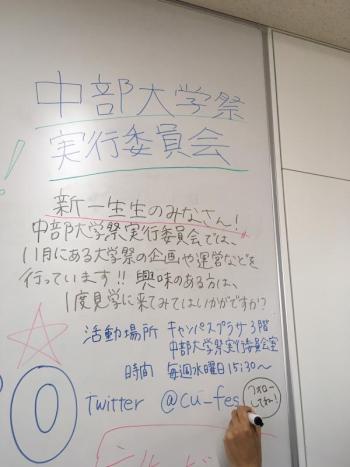 中部大学祭
実行委員会
新一生生のみなさん!
中部大学祭実行委員会では、
11月にある大学祭の企画や運営などを
行っています!! 興味のある方は、
1度見学に来てみてはいかがですか!?
活動場所 キャンパスプラザ3階
中部大学祭実行委員会室
時間 毎週水曜日15:30〜
Twitter @cu_fes
フォロー
してね!